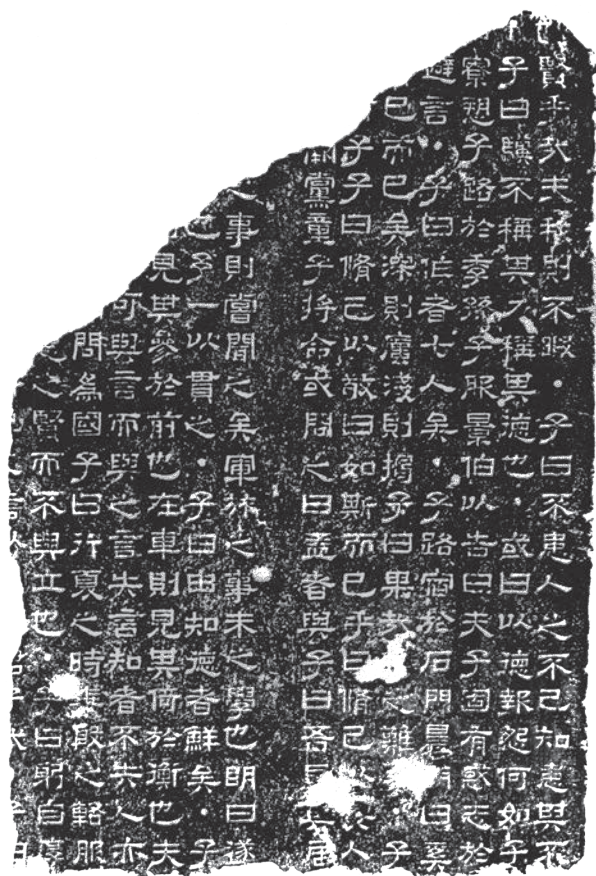 賢乎哉夫我則不暇·子曰不患人之不己知患其不
子曰驥不稱其力稱其德也·或曰以德報怨何如子
寮愬子路於季孫子服景伯以告曰夫子固有惑志於
避言·子曰作者七人矣·子路宿於石門晨門曰奚
已而已矣深則厲淺則揭子曰果哉之難·子
子子曰脩己以敬曰如斯而已乎曰脩己以人
黨童子將命或問之曰益者與子曰吾見居
事則嘗聞之矣軍旅之事未之學也明日遂
也予一以貫之·子曰由知德者鮮矣·子
見其參於前也在車則見其倚於衡也夫
可與言而與之言失言知者不失人亦
問為國子曰行夏之時乘殷之輅服
之賢而不與立也·子曰躬自厚